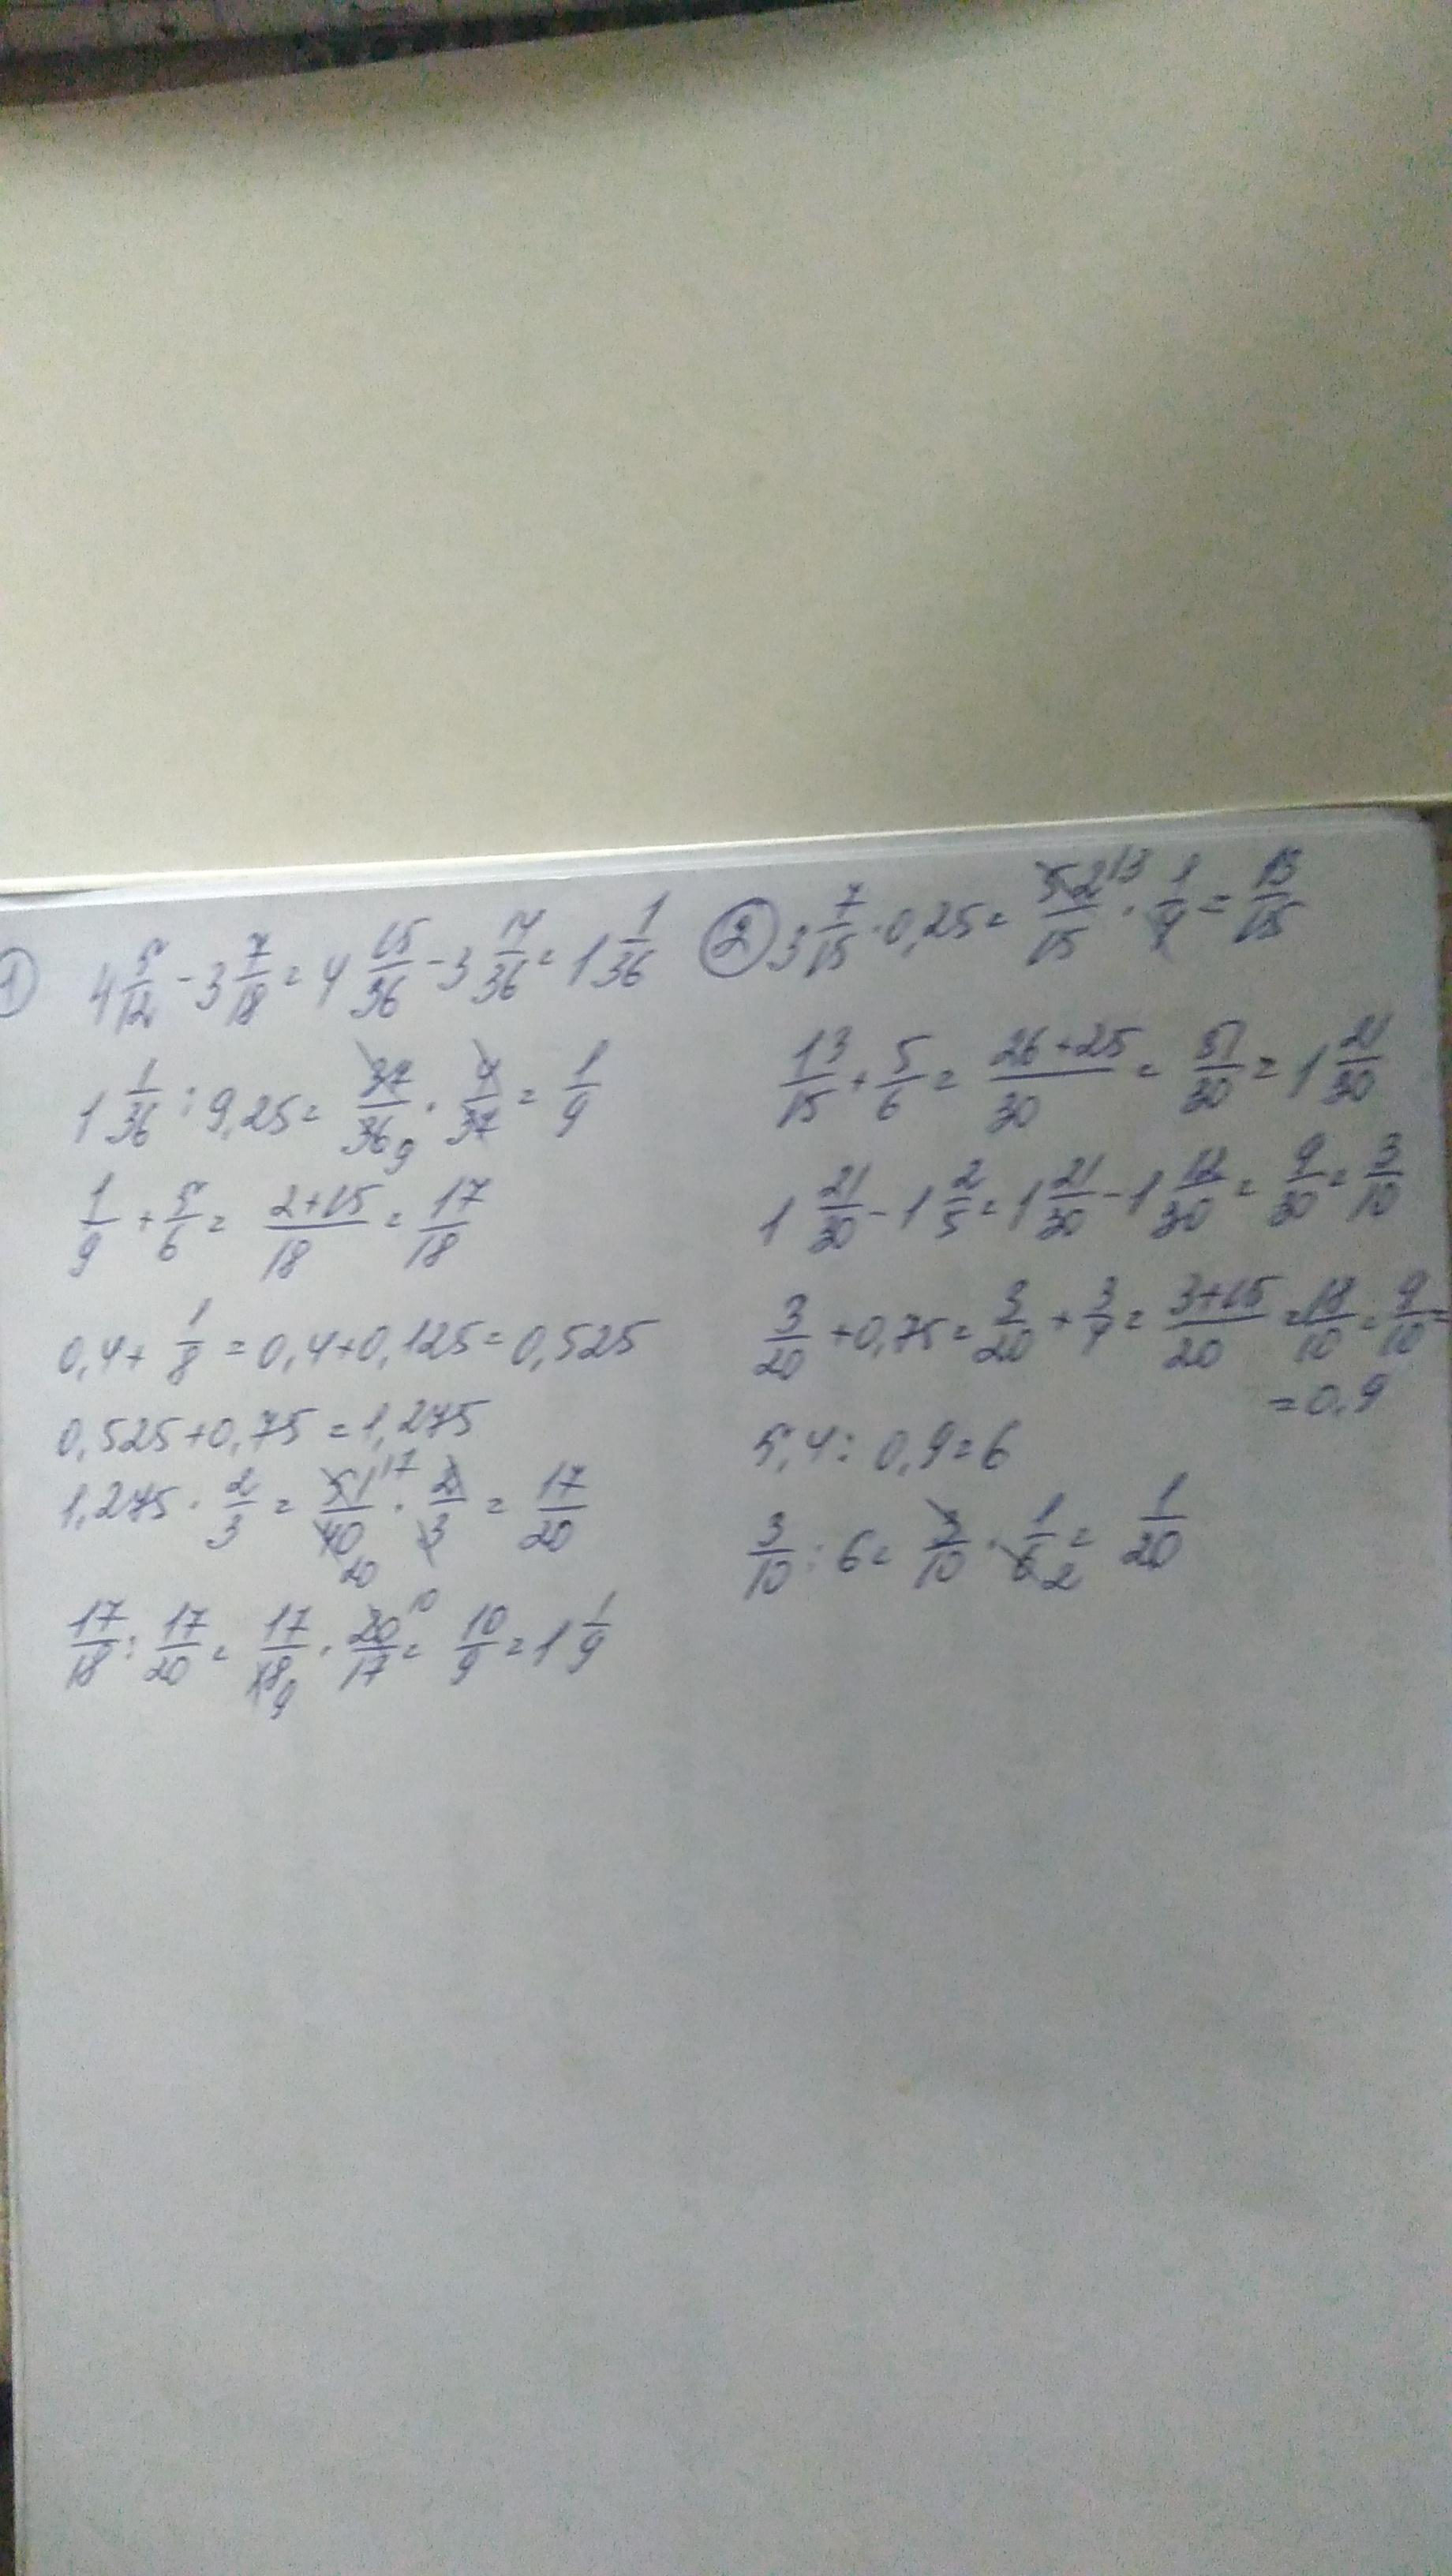 1) 4 5/12 - 3 7/18 = 4 15/36 - 3 14/36 = 1 1/36
1 1/36 : 9,25 = 37/36 9 · 4/37 = 1/9
1/9 + 5/6 = 2+15/18 = 17/18
0,4 + 1/8 = 0,4+0,125 = 0,525
0,525+0,75 = 1,275
1,275 · 2/3 = 51 17/40 20 · 2/3 = 17/20
17/18 : 17/20 = 17/18 9 · 20 10/17 = 10/9 = 1 1/9
2) 3 7/15 · 0,25 = 52 13/15 · 1/4 = 13/15
13/15 + 5/6 = 26+25/30 = 51/30 = 1 21/30
1 21/30 - 1 2/5 = 1 21/30 - 1 12/30 = 9/30 = 3/10
3/20 + 0,75 = 3/20 + 3/4 = 3+15/20 = 18/10 = 9/10 =
= 0,9
5,4 : 0,9 = 6
3/10 : 6 = 3/10 · 1/6 2 = 1/20